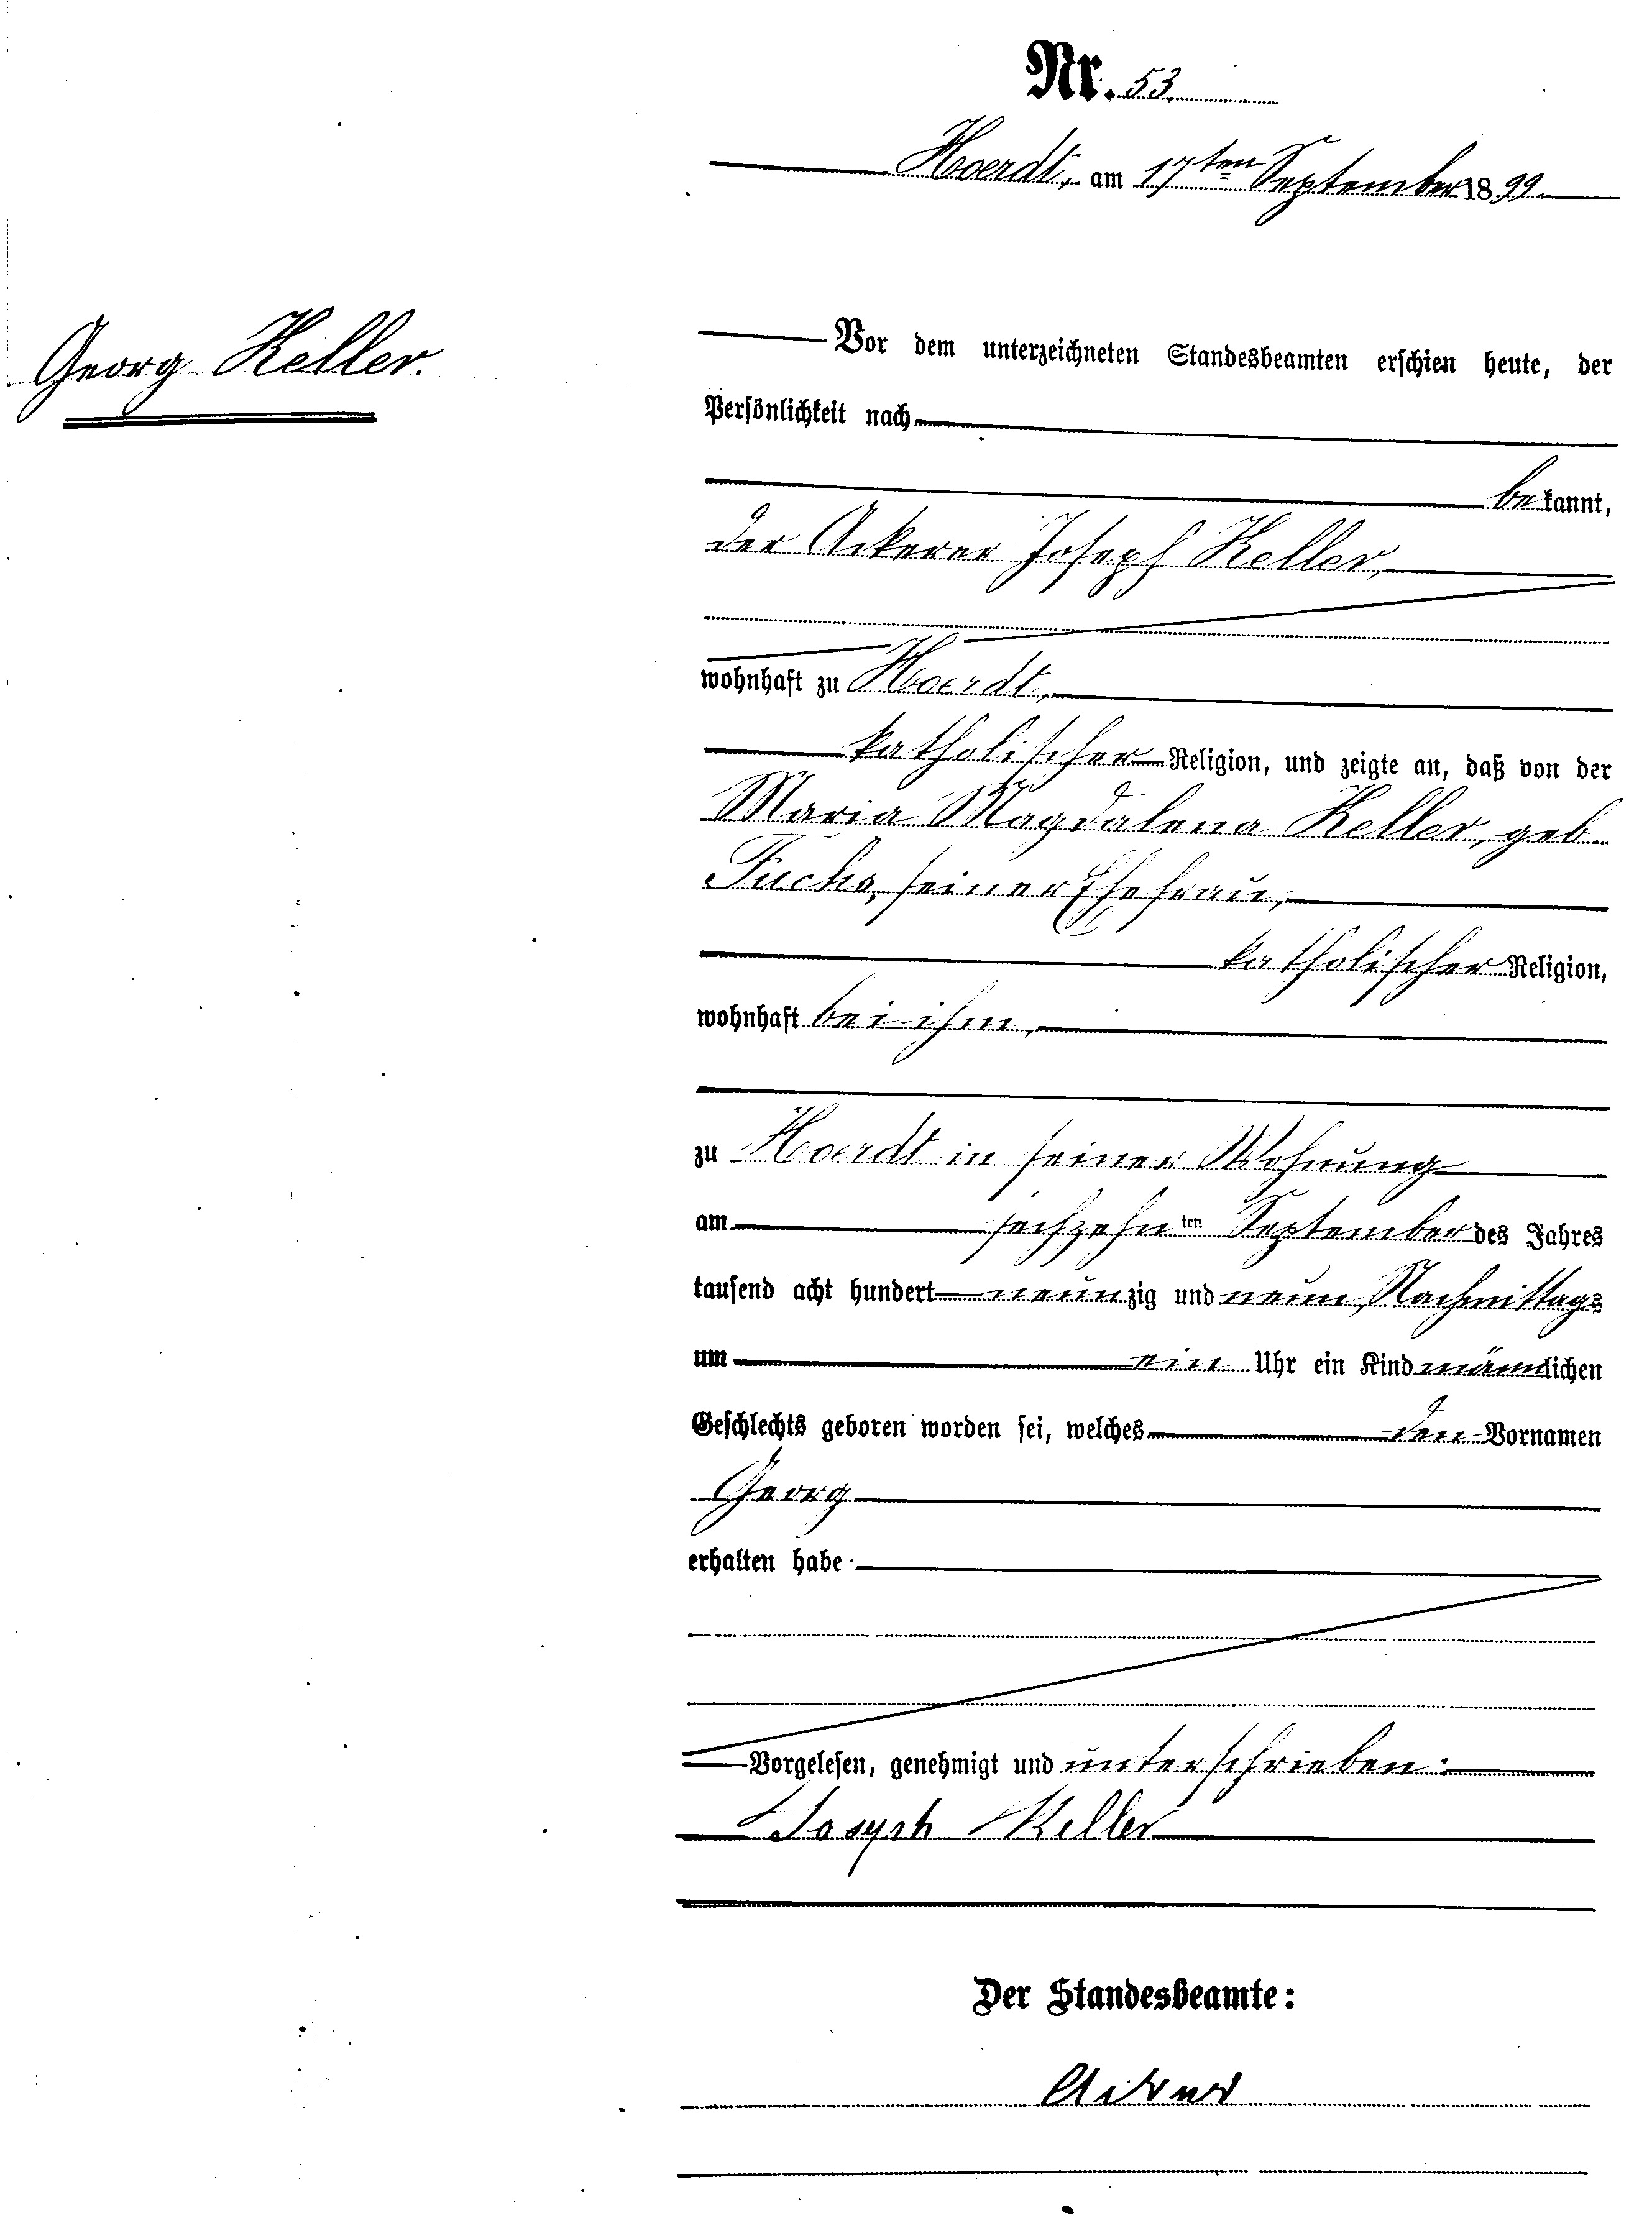 Nr. 53.
Hoerdt, am 17ten September 1899.
Georg Keller.
Vor dem unterzeichneten Standesbeamten erschien heute, der
Persönlichkeit nach
bekannt,
der Ackerer Joseph Keller,
wohnhaft zu Hoerdt,
katholischer Religion, und zeigte an, daß von der
Maria Magdalena Keller, geb.
Fuchs, seiner Ehefrau,
katholischer Religion,
wohnhaft bei ihm,
zu Hoerdt in seiner Wohnung
am sechzehnten September des Jahres
tausend acht hundert neunzig und neun, Nachmittags
um ein Uhr ein Kind männlichen
Geschlechts geboren worden sei, welches den Vornamen
Georg
erhalten habe.
Vorgelesen, genehmigt und unterschrieben:
Joseph Keller
Der Standesbeamte: